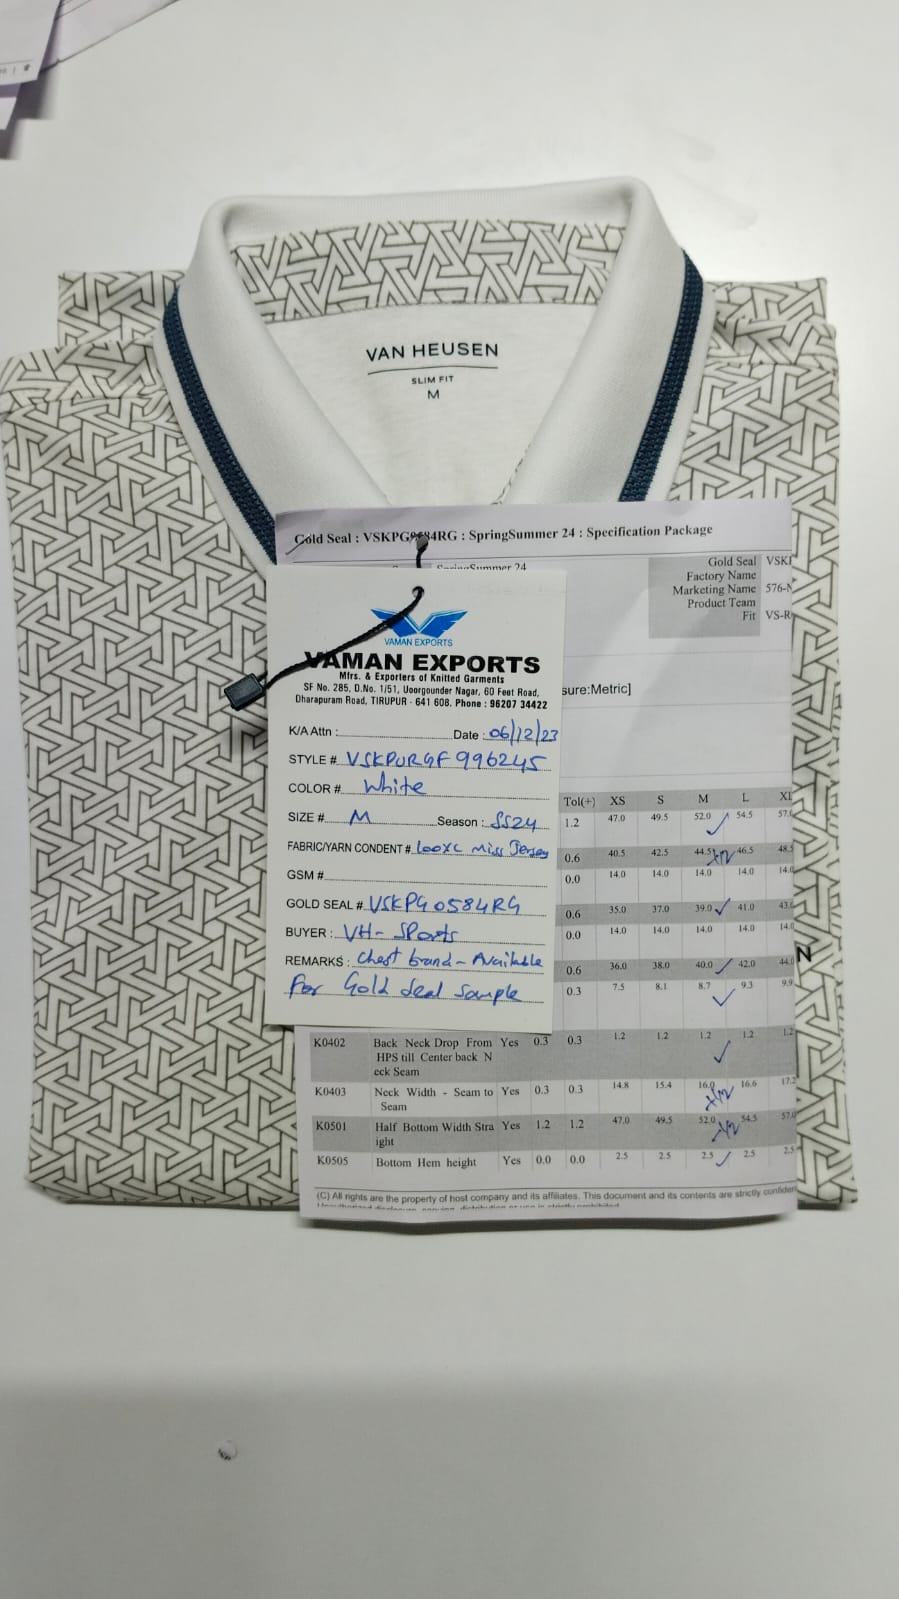 VAN HEUSEN
SLIM FIT
M
Gold Seal : VSKPG0584RG : SpringSummer 24 : Specification Package
SpringSummer 24
Gold Seal VSKP
Factory Name
Marketing Name 576-N
Product Team
Fit VS-R
sure:Metric]
VAMAN EXPORTS
VAMAN EXPORTS
Mfrs. & Exporters of Knitted Garments
SF No. 285, D.No. 1/51, Uoorgounder Nagar, 60 Feet Road,
Dharapuram Road, TIRUPUR - 641 608. Phone : 96207 34422
K/A Attn : Date : 06/12/23
STYLE # VSKPURGF996245
COLOR # White
SIZE # M Season : SS24
FABRIC/YARN CONDENT # 100%C Miss Jersey
GSM #
GOLD SEAL # VSKPG0584RG
BUYER : VH- Sports
REMARKS : Chest brand - Available
For Gold Seal Sample
Tol(+) XS S M L XL
1.2 47.0 49.5 52.0 54.5 57.0
0.6 40.5 42.5 44.5 46.5 48.5
0.0 14.0 14.0 14.0 14.0 14.0
0.6 35.0 37.0 39.0 41.0 43.0
0.0 14.0 14.0 14.0 14.0 14.0
0.6 36.0 38.0 40.0 42.0 44.0
0.3 7.5 8.1 8.7 9.3 9.9
N
K0402 Back Neck Drop From Yes 0.3 0.3 1.2 1.2 1.2 1.2 1.2
HPS till Center back N
eck Seam
K0403 Neck Width - Seam to Yes 0.3 0.3 14.8 15.4 16.0 16.6 17.2
Seam
K0501 Half Bottom Width Stra Yes 1.2 1.2 47.0 49.5 52.0 54.5 57.0
ight
K0505 Bottom Hem height Yes 0.0 0.0 2.5 2.5 2.5 2.5 2.5
(C) All rights are the property of host company and its affiliates. This document and its contents are strictly confiden